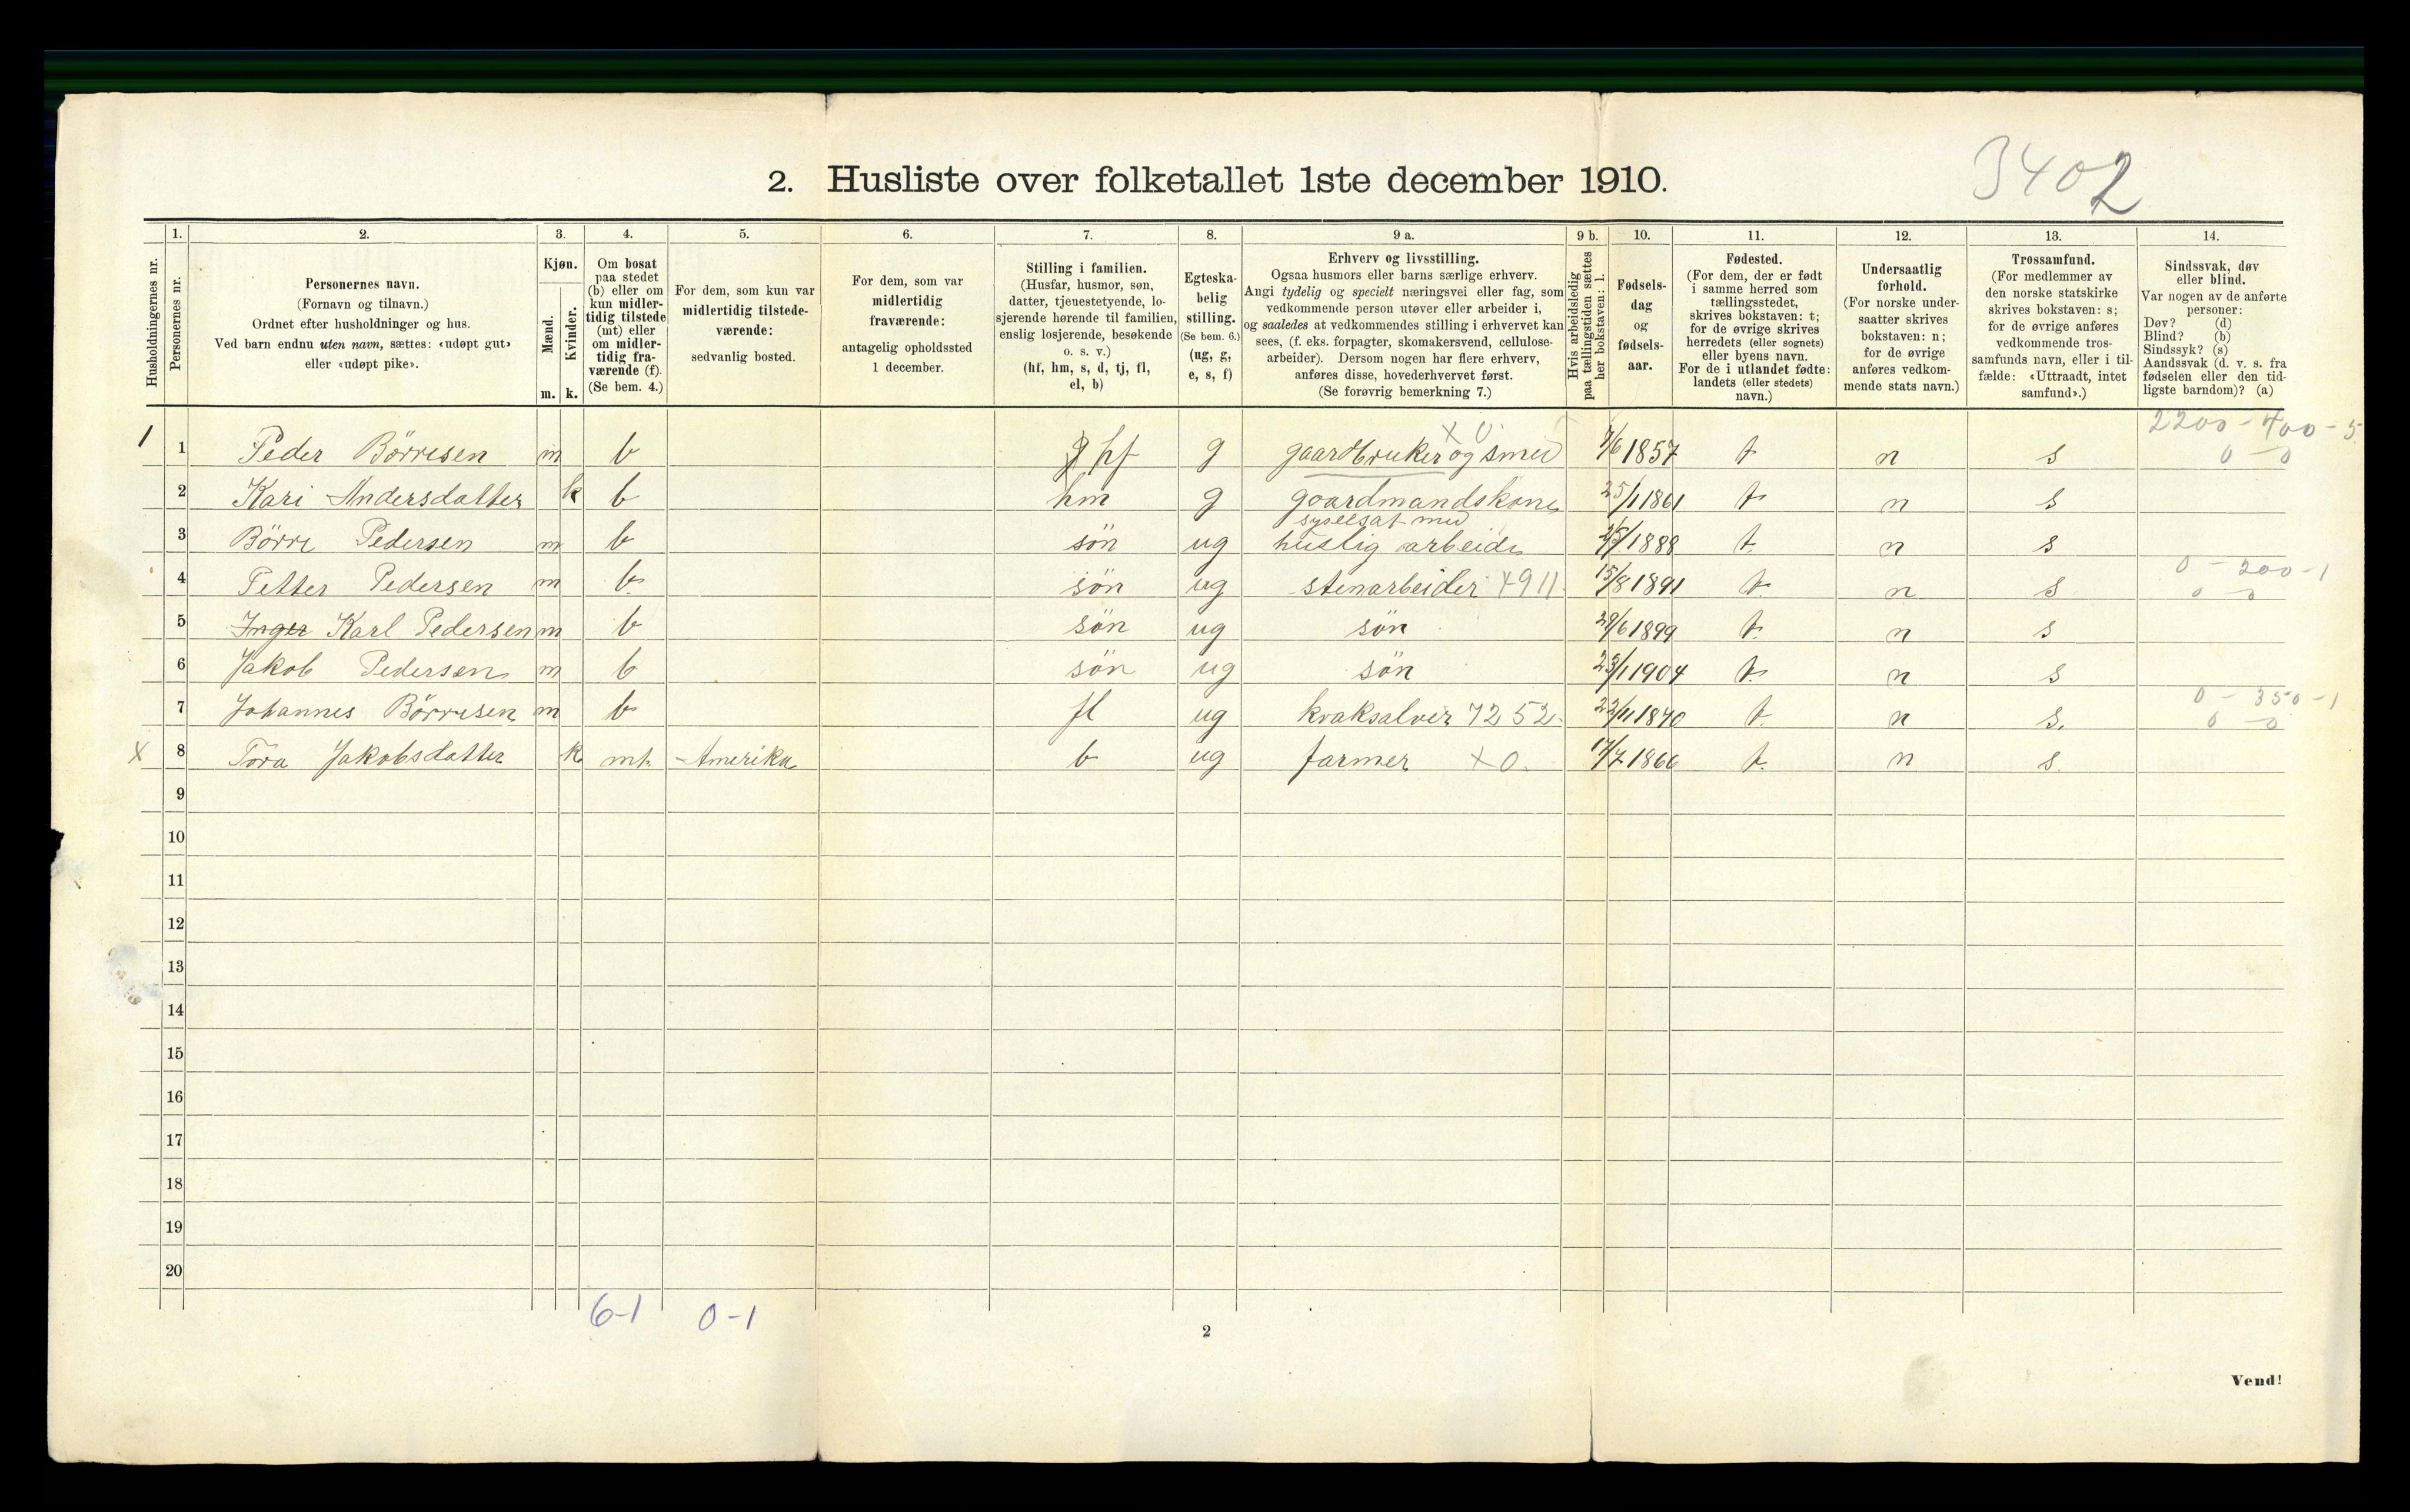 3402
2. Husliste over folketallet 1ste december 1910.
1. 2. 3. 4. 5. 6. 7. 8. 9 a. 9 b. 10. 11. 12. 13. 14.
Husholdningernes nr.
Personernes nr.
Personernes navn.
(Fornavn og tilnavn.)
Ordnet efter husholdninger og hus.
Ved barn endnu uten navn, sættes: «udøpt gut»
eller «udøpt pike».
Kjøn.
Mænd.
Kvinder.
m. k.
Om bosat
paa stedet
(b) eller om
kun midler-
tidig tilstede
(mt) eller
om midler-
tidig fra-
værende (f).
(Se bem. 4.)
For dem, som kun var
midlertidig tilstede-
værende:
sedvanlig bosted.
For dem, som var
midlertidig
fraværende:
antagelig opholdssted
1 december.
Stilling i familien.
(Husfar, husmor, søn,
datter, tjenestetyende, lo-
sjerende hørende til familien,
enslig losjerende, besøkende
o. s. v.)
(hf, hm, s, d, tj, fl,
el, b)
Egteska-
belig
stilling.
(Se bem. 6.)
(ug, g,
e, s, f)
Erhverv og livsstilling.
Ogsaa husmors eller barns særlige erhverv.
Angi tydelig og specielt næringsvei eller fag, som
vedkommende person utøver eller arbeider i,
og saaledes at vedkommendes stilling i erhvervet kan
sees, (f. eks. forpagter, skomakersvend, cellulose-
arbeider). Dersom nogen har flere erhverv,
anføres disse, hovederhvervet først.
(Se forøvrig bemerkning 7.)
Hvis arbeidsledig
paa tællingstiden sættes
her bokstaven: l.
Fødsels-
dag
og
fødsels-
aar.
Fødested.
(For dem, der er født
i samme herred som
tællingsstedet,
skrives bokstaven: t;
for de øvrige skrives
herredets (eller sognets)
eller byens navn.
For de i utlandet fødte:
landets (eller stedets)
navn.)
Undersaatlig
forhold.
(For norske under-
saatter skrives
bokstaven: n;
for de øvrige
anføres vedkom-
mende stats navn.)
Trossamfund.
(For medlemmer av
den norske statskirke
skrives bokstaven: s;
for de øvrige anføres
vedkommende tros-
samfunds navn, eller i til-
fælde: «Uttraadt, intet
samfund».)
Sindssvak, døv
eller blind.
Var nogen av de anførte
personer:
Døv? (d)
Blind? (b)
Sindssyk? (s)
Aandssvak (d. v. s. fra
fødselen eller den tid-
ligste barndom)? (a)
X 0 2200 - 400 - 5
1 1 Peder Börresen m b hf g gaardbruker og smed 7/6 1857 t n s 0 - 0
2 Kari Andersdatter k b hm g gaardmandskone 25/1 1861 t n s
syselsat med
3 Börre Pedersen m b sön ug huslig arbeide 1888 t n s
0 - 200 - 1
4 Petter Pedersen m b sön ug stenarbeider 4911 15/8 1891 t n s 0 - 0
5 Inger Karl Pedersen m b sön ug sön 29/6 1899 t n s
6 Jakob Pedersen m b sön ug sön 25/1 1904 t n s
0 - 350 - 1
7 Johannes Börresen m b fl ug kvaksalver 7252 22/11 1870 t n s. 0 - 0
X 8 Tora Jakobsdatter k mt. Amerika b ug farmer X 0. 17/7 1866 t. n s.
9
10
11
12
13
14
15
16
17
18
19
20
6-1 0-1
2
Vend!